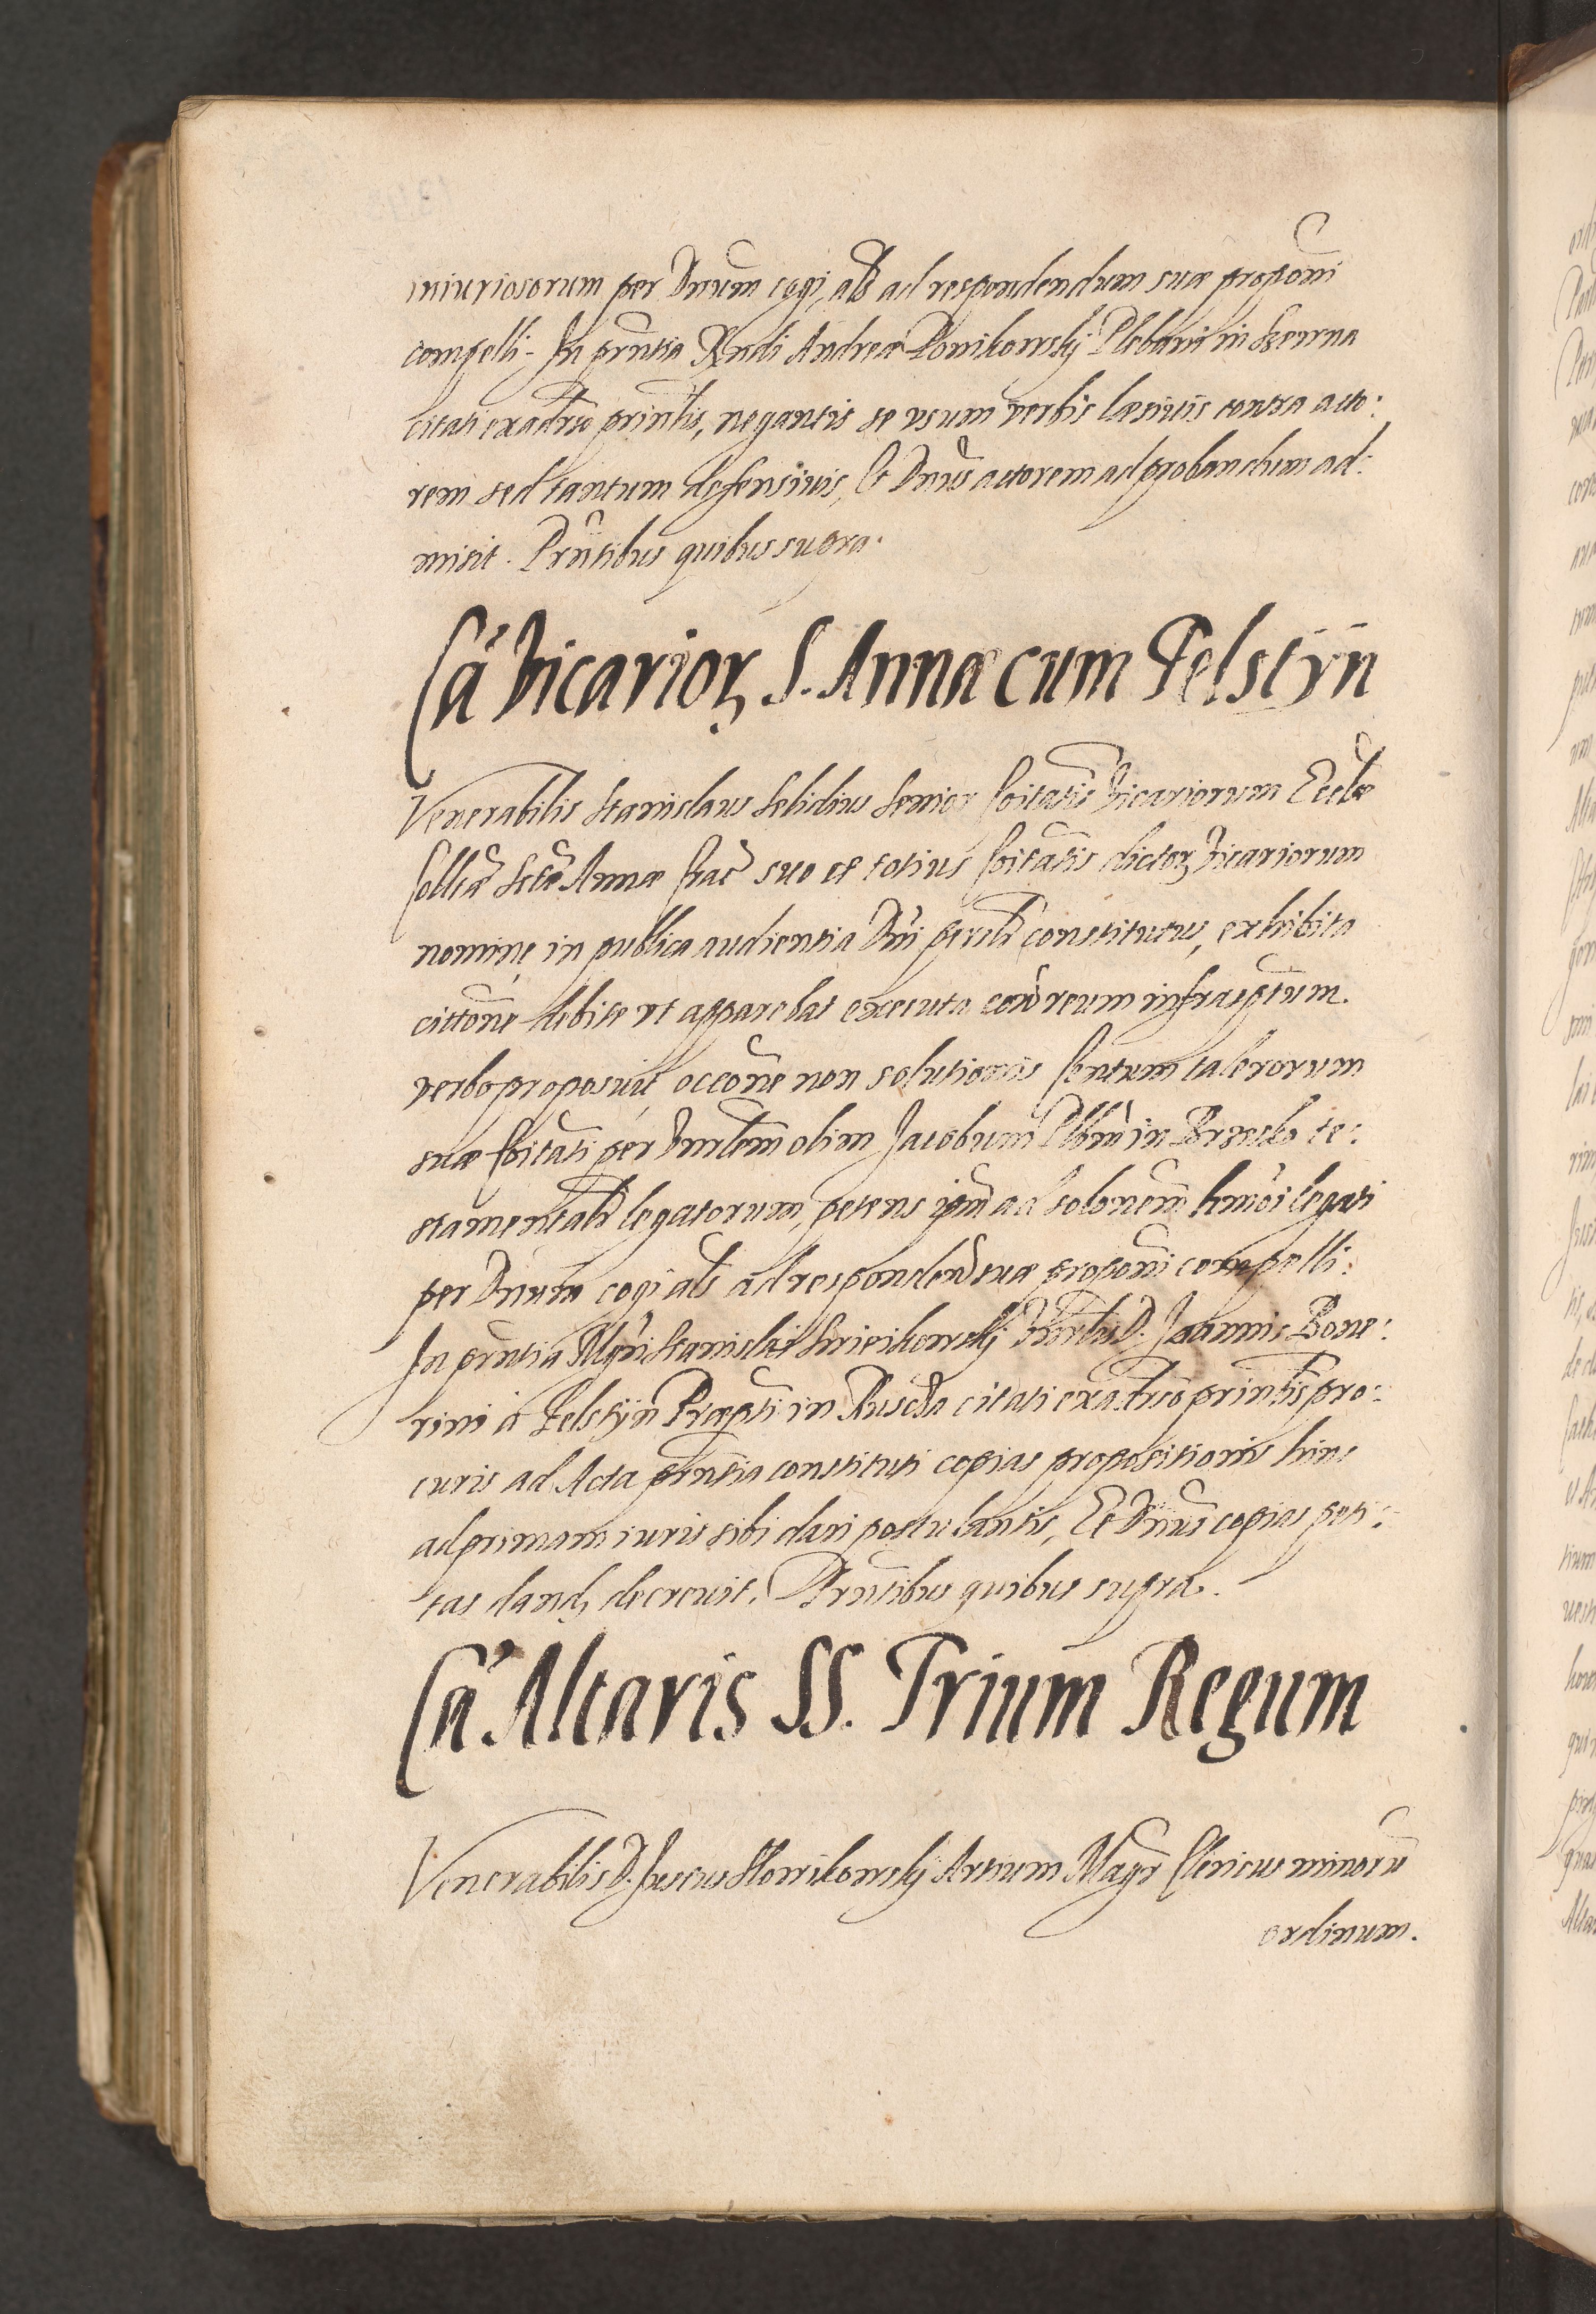 iniuriosorum per Dnum cogi, als ad respondendum suæ proponi
compelli. In prntia Rndi Andreæ Ponikowskÿ Plebani in
citati ex adrso printis, negantis se vsum verbis læsiuis contra acto:
rem sed tantum defensiuis, Et Dnus actorem ad probandum ad:
misit. Prntibus quibus supra.
Cá Vicarioꝝ S. Annæ cum Felstÿn
Venerabilis Stanislaus Selidius Senior Coitatis Vicariorum Ecclæ
Colltæ Sctæ Annæ Crac suo et totius Coitatis dictoꝝ Vicariorum
nomine in publica audientia Dni persltr constitutus, exhibita
cittone debite vt apparebat executa con reum infrascptum
verbo proposuit occone non solutionis Centum talerorum
suæ Coitati per Vnrlem olim Jacobum Plbnum in Brzesko te:
stamentalr legatorum, petens ipm ad solonem hmoi legati
per Dnum cogi als ad respondend suæ proponi compelli.
In prntia Mgri Stanislai Vnrlis D. Joannis Bone:
rini à Felstÿn Præpti in citati ex adrso printis pro:
curis ad Acta prntia constituti copias propositionis hinc
ad primam iuris sibi dari postulantis, Et Dnus copias peti:
tas dandas decreuit. Prntibus quibus supra.
Cá Altaris SS. Trium Regum
Venerabilis D. Justus Slowikowskÿ Artium Magr Clericus minorū
ordinum.